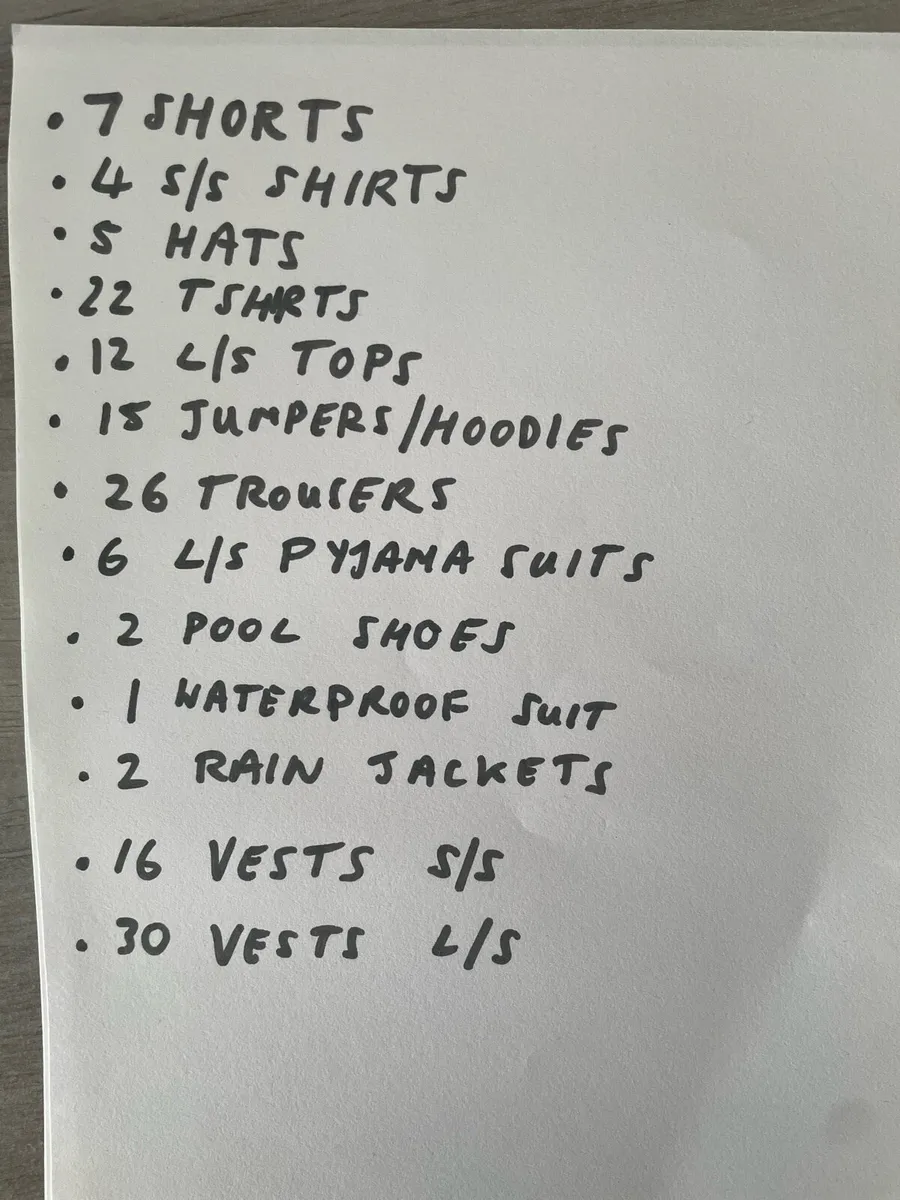 • 7 SHORTS
• 4 S/S SHIRTS
• 5 HATS
• 22 TSHIRTS
• 12 L/S TOPS
• 15 JUMPERS/HOODIES
• 26 TROUSERS
• 6 L/S PYJAMA SUITS
• 2 POOL SHOES
• 1 WATERPROOF SUIT
• 2 RAIN JACKETS
• 16 VESTS S/S
• 30 VESTS L/S